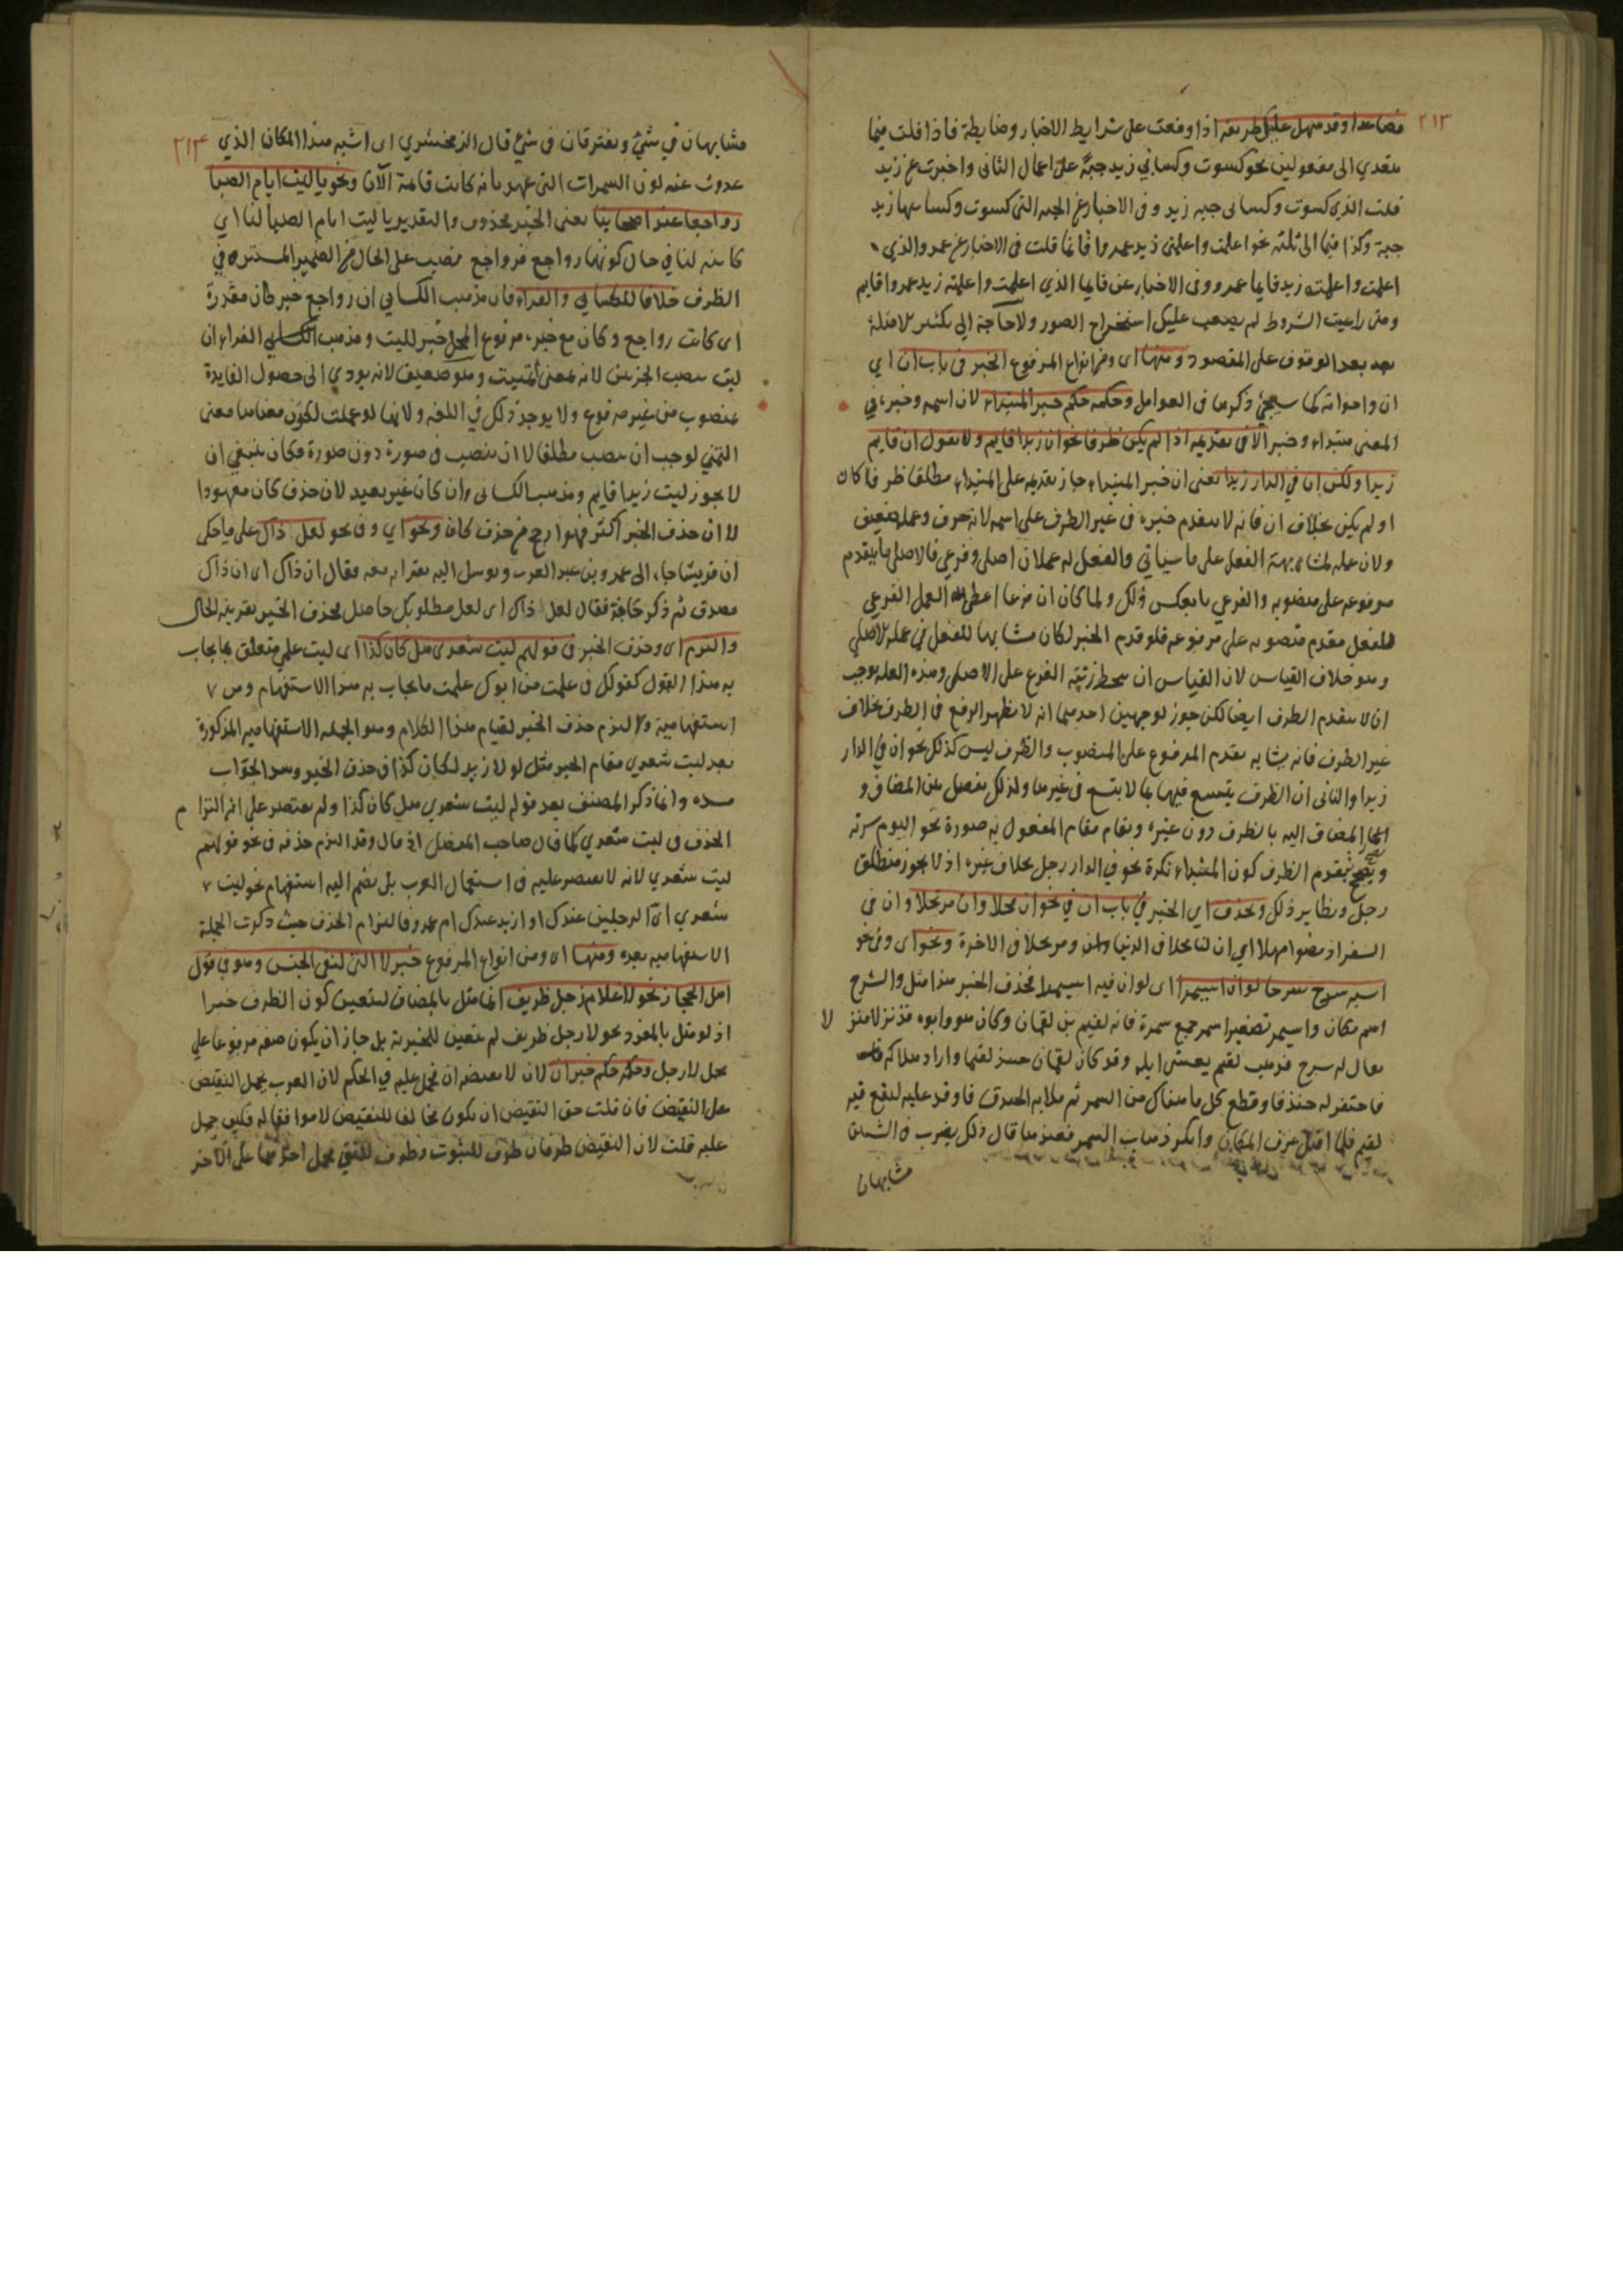 ٢١٣
فصاعدا وقد سهل عليك طريقه اذا وقفت على شرايط الاخبار وضابطة فاذا قلت فيما
يتعدي الى مفعولين نحو كسوت وكساني زيد جبة على اعمال الثانى واخبرت عن زيد
قلت الذى كسوت وكسانى جبه زيد وفى الاخبار عن الجبه التى كسوت وكسانيها زيد
جبة وكذا فيما الى ثلثه نحو اعلمت واعلمنى زيد عمروا قايما قلت فى الاخبار عن عمرو الذي
اعلمت واعلمنيه زيد قايما عمرو وفى الاخبار عن قايما الذي اعلمت واعلمنيه زيد عمروا قايم
ومتى راعيت الشروط لم يصعب عليك استخراج الصور ولا حاجة الى تكثير الامثلة
بعد الوقوف على المقصود ومنها اى ومن انواع المرفوع الخبر فى باب ان اي
ان واخواته كما سيجئ ذكرها فى العوامل وحكمه حكم خبر المبتداء لان اسمه وخبره في
المعنى مبتداء وخبر الا فى تقديمه اذا لم يكن ظرفا نحو ان زيدا قايم ولا تقول ان قايم
زيدا ولكن ان في الدار زيدا يعنى ان خبر المبتداء جاز تقديمه على المبتداء مطلقا ظرفا كان
او لم يكن بخلاف ان فانه لا يتقدم خبره فى غير الظرف على اسمه لانه حرف وعمله ضعيف
ولان عمله لمشابهة الفعل على ما سياتي والفعل له عملان اصلى وفرعي فالاصلى ما يتقدم
مرفوعه على منصوبه والفرعي بالعكس ذلك ولما كان ان فرعا اعطى العمل الفرعي
للفعل مقدم منصوبه على مرفوعه فلو قدم الخبر لكان مشابها للفعل في عمله الاصلي
وهو خلاف القياس لان القياس ان يحط رتبة الفرع على الاصلى وهذه العلة يوجب
ان لا يتقدم الظرف ايضا لكن جوز لوجهين احدهما انه لا يظهر الرفع فى الظرف بخلاف
غير الظرف فانه يشابه تقدم المرفوع على المنصوب والظرف ليس كذلك نحو ان في الدار
زيدا والثانى ان الظرف يتسع فيها ما لا يتسع فى غيرها ولذلك تفصل بين المضاف و
المضاف اليه بالظرف دون غيره ويقام مقام المفعول به صورة نحو اليوم سرته
ويصحح بتقدم الظرف كون المبتداء نكرة نحو في الدار رجل بخلاف غيره اذ لا يجوز منطلق
رجل ونظاير ذلك ويحذف اي الخبر في باب ان في نحو ان محلا وان مرتحلا وان في
السفر اذ مضوا مهلا اي ان لنا محلا فى الدنيا وان مرتحلا فى الاخرة ونحو اى وفى نحو
اسبه سرح سرحا لو ان اسيمرا اى لو ان فيه اسيمرا فحذف الخبر هذا مثل والشرج
اسم مكان واسيمر تصغير اسمر جمع سمرة فانه لقيم بن لقمان وكان هو وابوه قد نزلا منزلا
يقال له شرج فذهب لقيم يعشى ابله وقد كان لقمان حسد لقيما واراد هلاكه
فاحتفر له خندقا وقطع كل ما هناك من السمر ثم ملا به الخندق فاوقد عليه ليقع فيه
لقيم فلما اقبل عرف المكان وانكر ذهاب السمر فعندها قال ذلك يضرب فى الشيئين
مشابهان
٢١٤
مشابهان في شئ ويفترقان فى شئ قال الزمخشري اى اشبه هذا المكان الذي
عدوت عنه لو ان السمرات التى عهدتها به كانت قائمة الآن ونحو يا ليت ايام الصبا
رواجعا عند اصحابنا يعنى الخبر محذوف والتقدير يا ليت ايام الصبا لنا اي
كائنه لنا في حال كونها رواجع فرواجع منصب على الحال من الضمير المستتر في
الظرف خلافا للكسائي والفراء فان مذهب الكسائي ان رواجع خبر كان مقدرة
اى كانت رواجع وكان مع خبره مرفوع المحل خبر لليت ومذهب الفراء ان
ليت ينصب الجزئين لانه بمعنى تمنيت وهو ضعيف لانه يودي الى حصول الفايدة
بمنصوب من غير مرفوع ولا يوجد ذلك في اللغه ولانها لو عملت لكون معناها معنى
التمني لوجب ان ينصب مطلقا لا ان ينصب فى صورة دون صورة فكان ينبغي ان
لا يجوز ليت زيدا قايم ومذهب الكسائى وان كان غير بعيد لان حذف كان معهودا
الا ان حذف الخبر اكثر فهو ارجح من حذف كان ونحو اي وفى نحو لعل ذاك على ما حكى
ان قريشيا جاء الى عمر بن عبد العزيز وتوسل اليه بقرابته فقال ان ذاك اى ان ذاك
مصدق ثم ذكر حاجة فقال لعل ذاك اى لعل مطلوبك حاصل فحذف الخبر بقرينه الحال
والتزم اى وحذف الخبر فى قولهم ليت شعرى هل كان كذا اى ليت علمي متعلق بما يجاب
به هذا القول كقولك فى علمت من ابوك علمت ما يجاب به هذا الاستفهام ومن
استفهامية والتزم حذف الخبر لقيام هذا الكلام وهو الجمله الاستفهاميه المذكورة
بعد ليت شعري مقام الخبر مثل لولا زيد لكان كذا فى حذف الخبر وسد الجواب
مسده وانما ذكر المصنف بعد قوله ليت شعري هل كان كذا ولم يقتصر على انه التزام
الحذف فى ليت شعري كما قال صاحب المفصل اذ قال وقد التزم حذفه فى نحو قولهم
ليت شعري لانه لا يقتصر عليه فى استعمال العرب بل يضم اليه استفهام نحو ليت
شعري اىّ الرجلين عندك او ازيد عندك ام عمرو فالتزام الحذف حيث ذكرت الجملة
الاستفهاميه بعده ومنها اى ومن انواع المرفوع خبر لا التى لنفى الجنس وهو في قول
اهل الحجاز نحو لا غلام رجل ظريف انما مثل بالمضاف ليتعين كون الظرف خبرا
اذ لو مثل بالمفرد نحو لا رجل ظريف لم يتعين للخبرية بل جاز ان يكون صفه مرفوعا على
محل لا رجل وحكمه حكم خبر ان لان لا نقيضه ان فحمل عليه في الحكم لان العرب يحمل النقيض
على النقيض فان قلت حق النقيض ان يكون مخالفا للنقيض لا موافقا له فكيف حمل
عليه قلت لان النقيض طرفان طرف للثبوت وطرف للنفي فحمل احدهما على الآخر